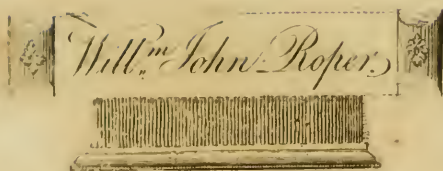 Will.ᵐ John Roper.